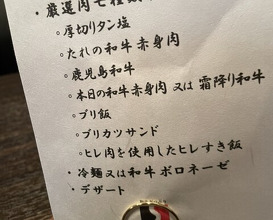 ・厳選肉七種
○厚切りタン塩
○たれの和牛赤身肉
○鹿児島和牛
○本日の和牛赤身肉又は霜降り和牛
○ブリ飯
○ブリカツサンド
○ヒレ肉を使用したヒレすき飯
・冷麺又は和牛ボロネーゼ
・デザート